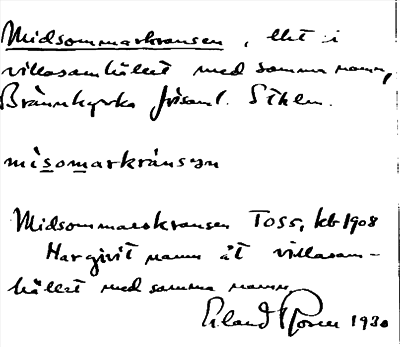 Midsommarkransen, lht i
villasamhället med samma namn,
Brännkyrka församl. Sthlm.
misomarkránsən
Midsommarskransen Toss, kb 1908
Har givit namn åt villasam-
hället med samma namn
Erland Rosell 1930